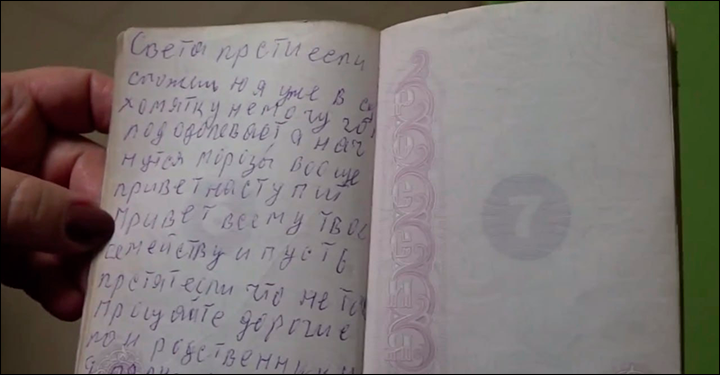 Света прсти если
сможешь ю я уже в с
хомятку немочу го
под одолевает а нач
нутся морозы восще
привет наступит
Привет всему твое
семейству и пусть
прстят если что не та
Прощайте дорогие
родственники
7